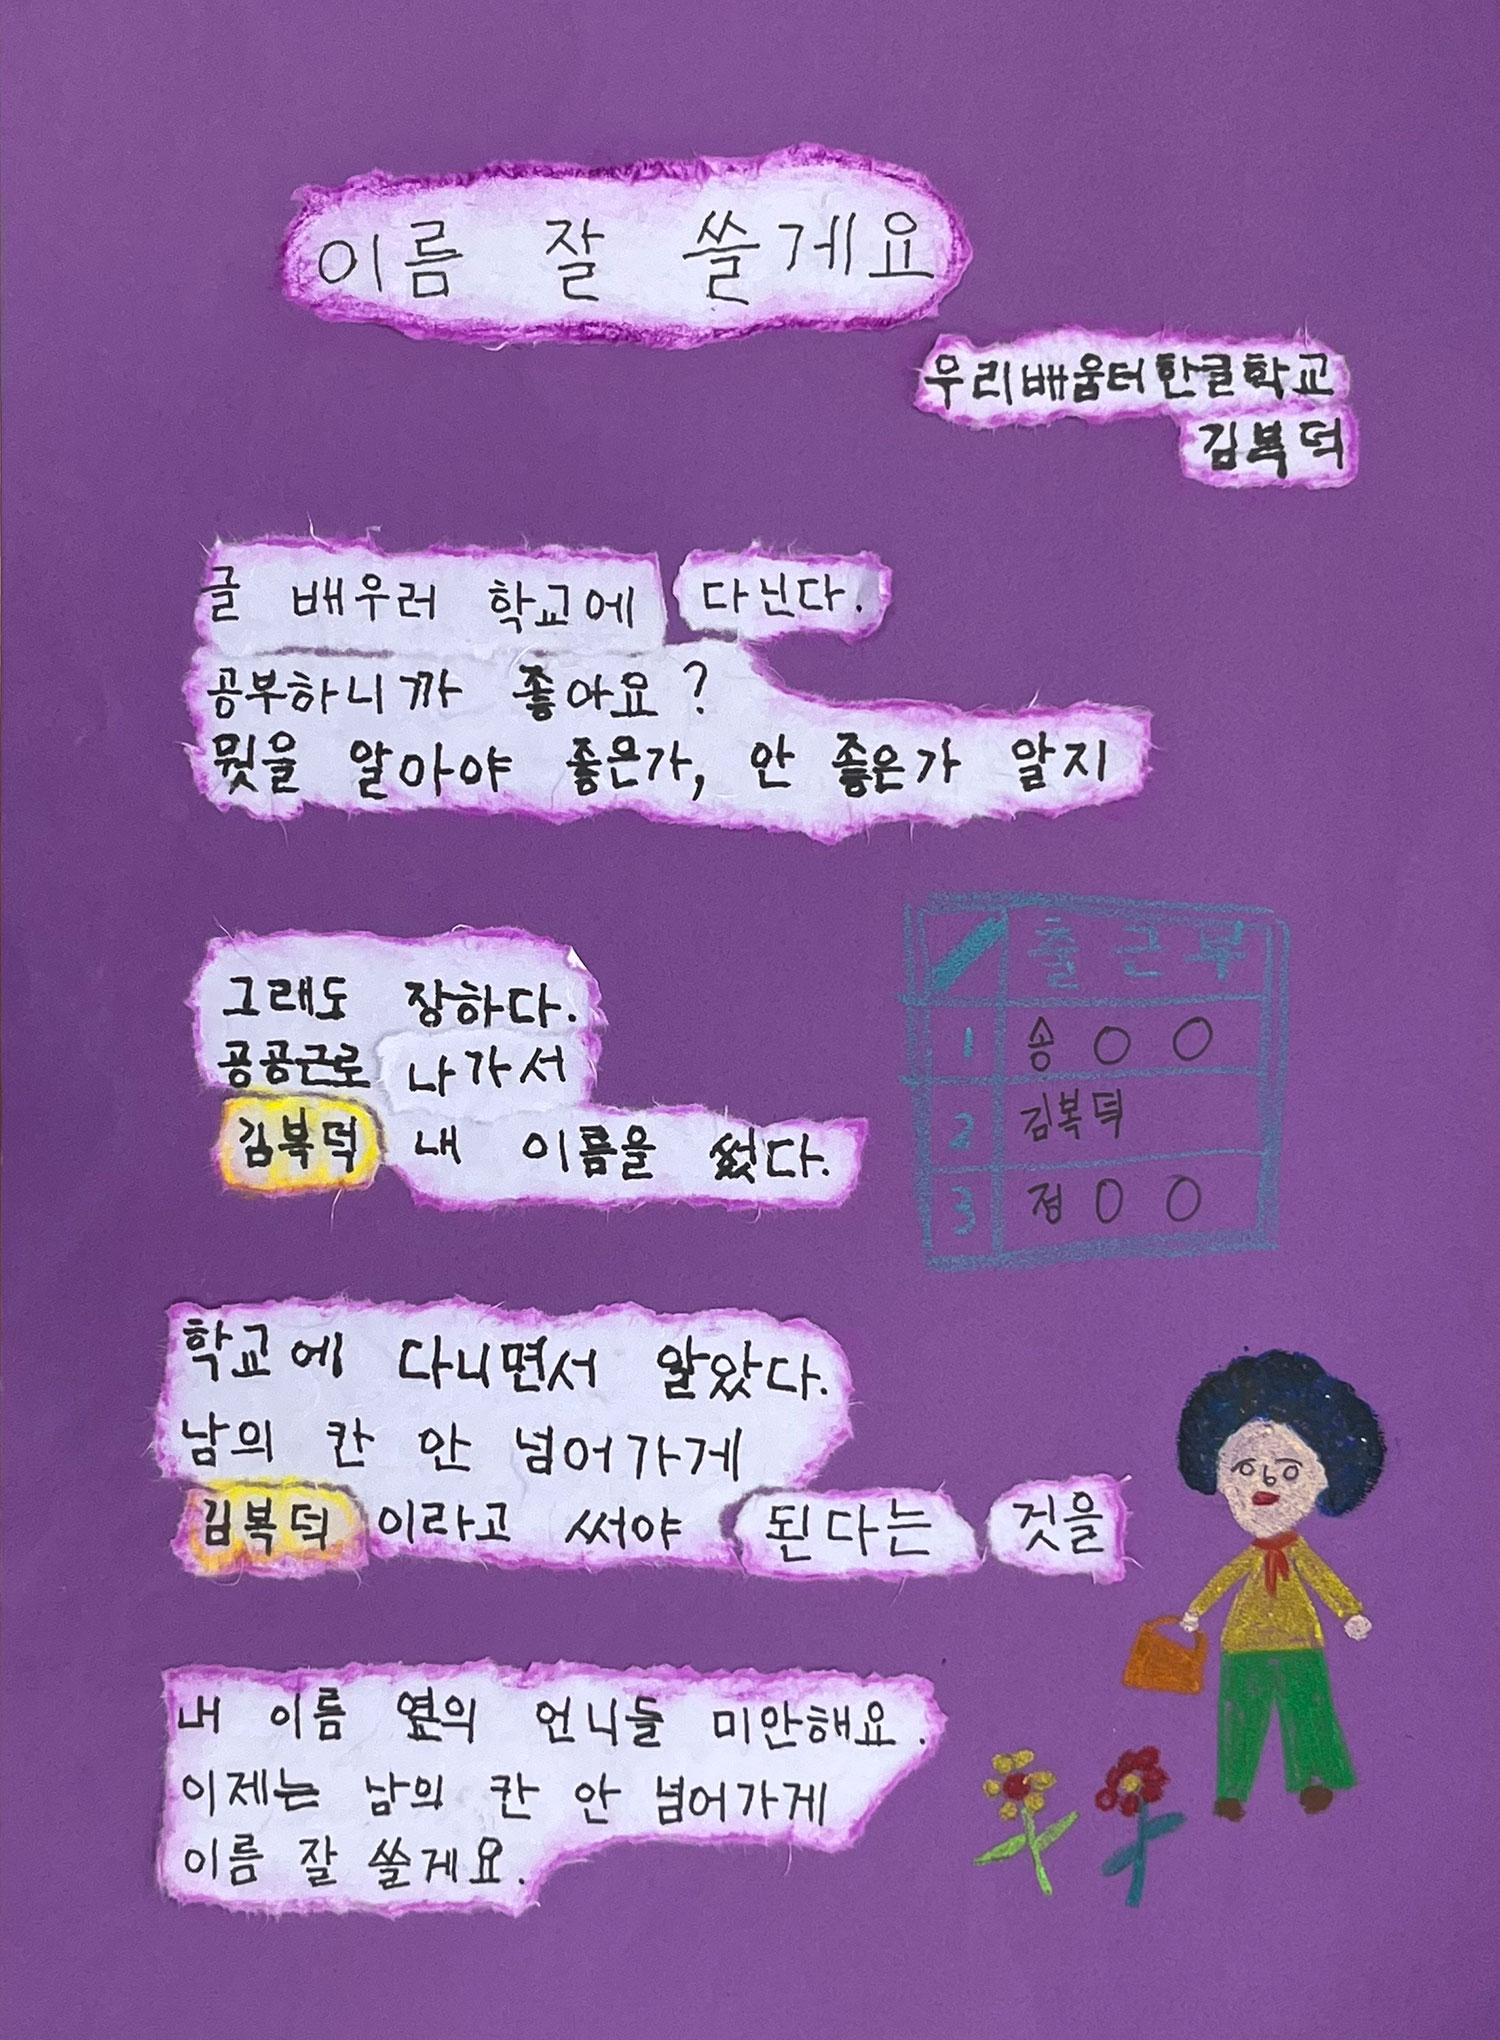 이름 잘 쓸게요
우리배움터한글학교
김복덕
글 배우러 학교에 다닌다.
공부하니까 좋아요?
뭣을 알아야 좋은가, 안 좋은가 알지
그래도 장하다.
공공근로 나가서
김복덕 내 이름을 썼다.
출근부
1 송 ○ ○
2 김복덕
3 정 ○ ○
학교에 다니면서 알았다.
남의 칸 안 넘어가게
김복덕 이라고 써야 된다는 것을
내 이름 옆의 언니들 미안해요.
이제는 남의 칸 안 넘어가게
이름 잘 쓸게요.